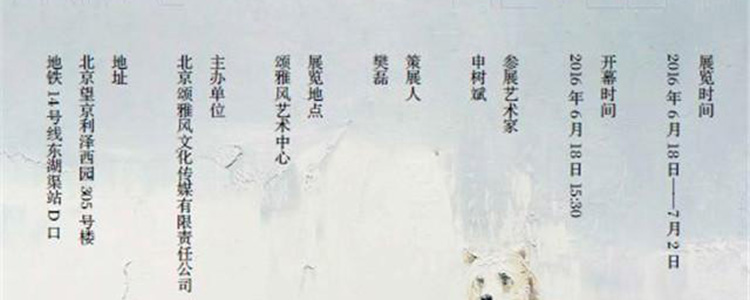 展览时间
2016 年 6 月 18 日——7 月 2 日
开幕时间
2016 年 6 月 18 日 15:30
参展艺术家
申树斌
策展人
樊磊
展览地点
颂雅风艺术中心
主办单位
北京颂雅风文化传媒有限责任公司
地址
北京望京利泽西园 305 号楼
地铁 14 号线东湖渠站 D 口